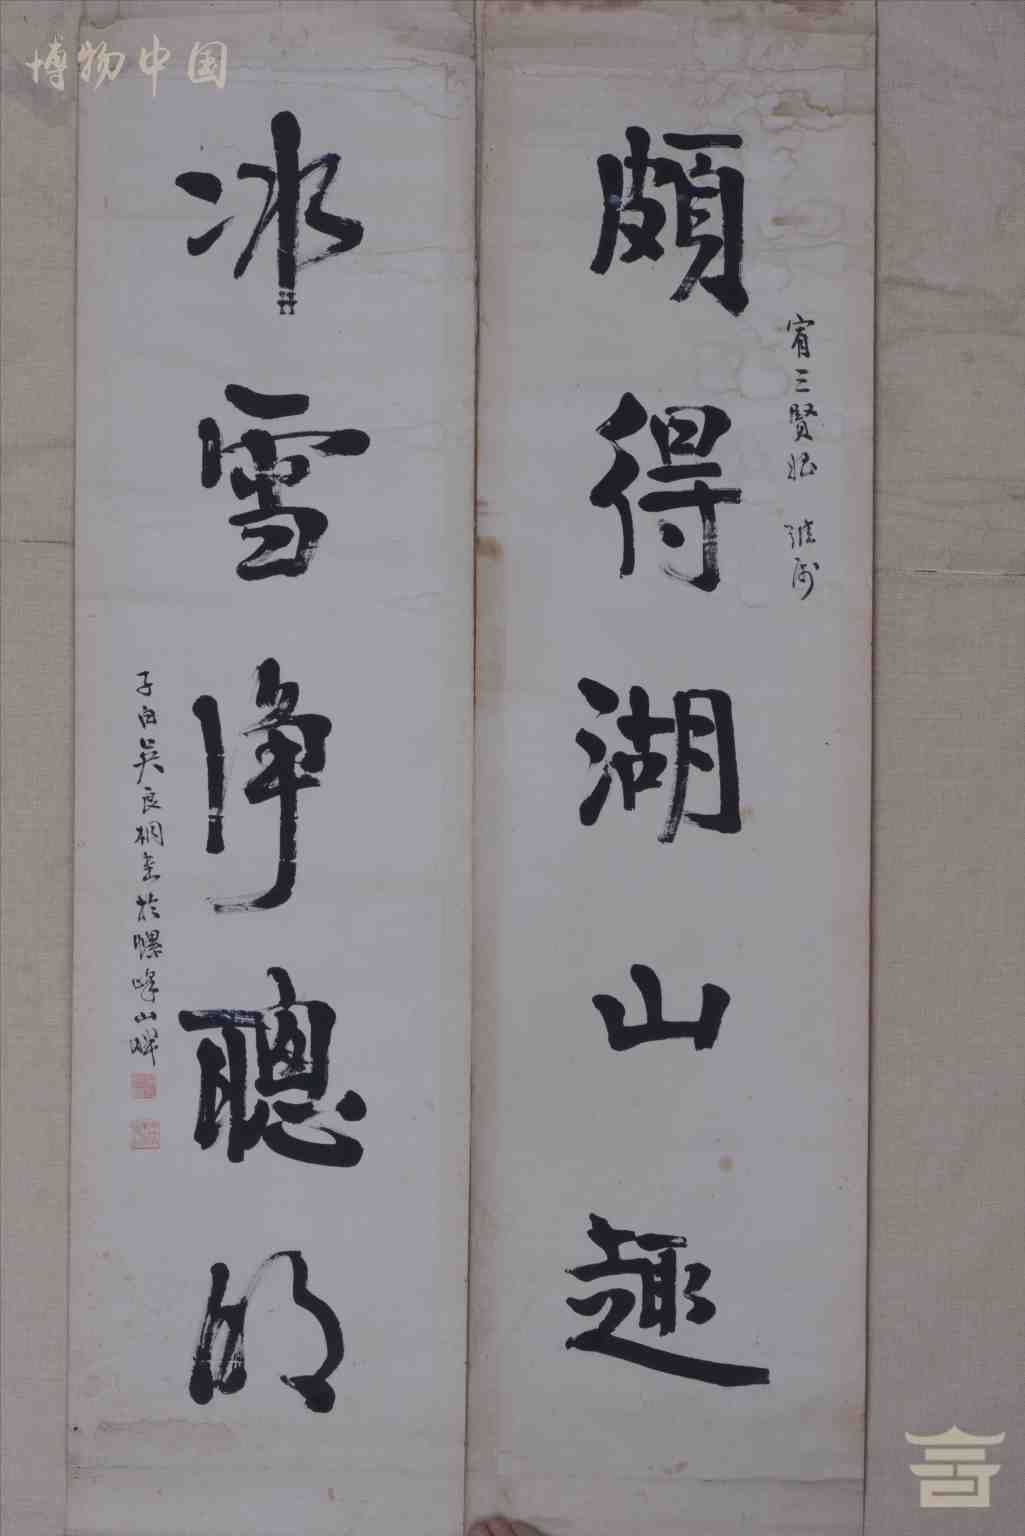 博物中国
賓三賢姪 雅屬
頗得湖山趣
冰雪淨聰明
子白吴良桐書於螺峰山畔